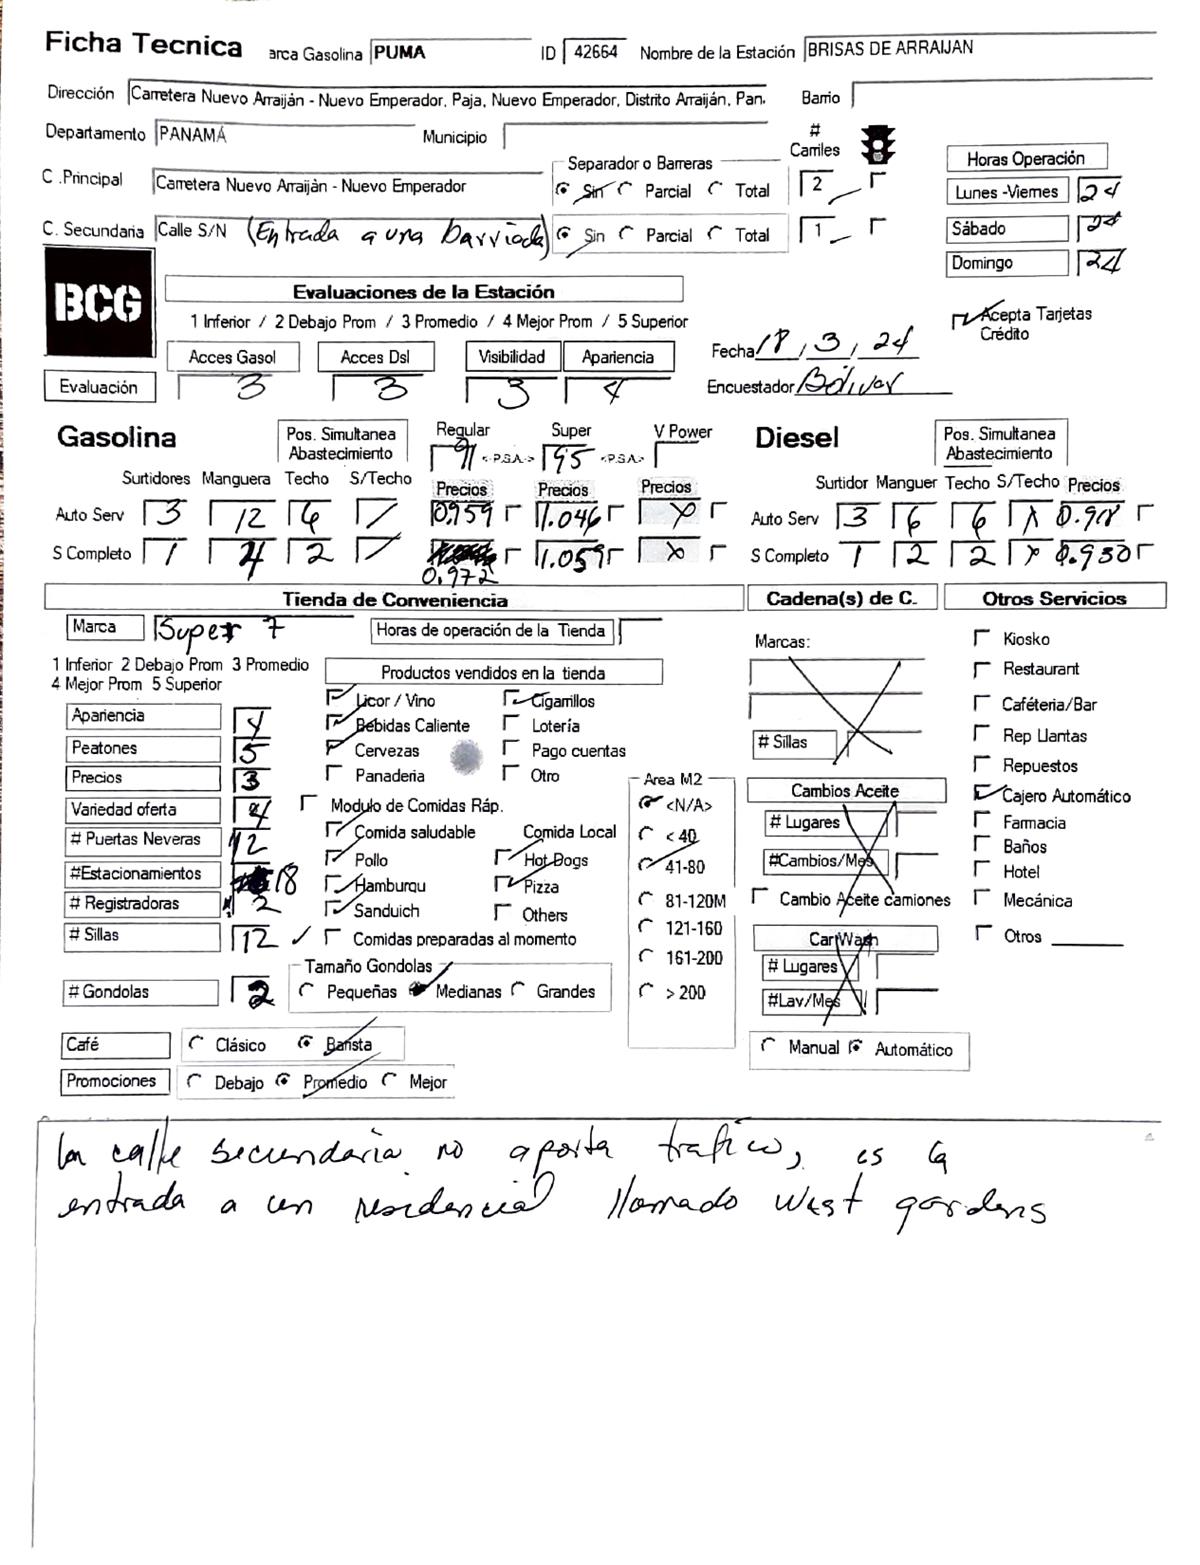 Ficha Tecnica arca Gasolina PUMA ID 42664 Nombre de la Estación BRISAS DE ARRAIJAN
Dirección Carretera Nuevo Arraiján - Nuevo Emperador, Paja, Nuevo Emperador, Distrito Arraiján, Pan. Barrio
Departamento PANAMÁ Municipio # Carriles
Separador o Barreras
Horas Operación
C .Principal Carretera Nuevo Arraiján - Nuevo Emperador Sin Parcial Total 2
Lunes -Viernes 24
C. Secundaria Calle S/N (Entrada a una barriada) Sin Parcial Total 1
Sábado 24
Domingo 24
BCG
Evaluaciones de la Estación
1 Inferior / 2 Debajo Prom / 3 Promedio / 4 Mejor Prom / 5 Superior
Acepta Tarjetas Crédito
Acces Gasol Acces Dsl Visibilidad Apariencia
Fecha 18, 3, 24
Evaluación 3 3 3 4
Encuestador Bolivar
Gasolina Pos. Simultanea Abastecimiento Regular 91 <-PSA-> Super 95 <-PSA-> V Power
Surtidores Manguera Techo S/Techo Precios Precios Precios
Auto Serv 3 12 6 / 0.959 1.046 x
S Completo 1 4 2 / 0.972 1.059 x
Diesel Pos. Simultanea Abastecimiento
Surtidor Manguer Techo S/Techo Precios
Auto Serv 3 6 6 x 0.918
S Completo 1 2 2 x 0.930
Tienda de Conveniencia
Marca Super 7 Horas de operación de la Tienda
1 Inferior 2 Debajo Prom 3 Promedio
4 Mejor Prom 5 Superior
Apariencia 4
Peatones 5
Precios 3
Variedad oferta 4
# Puertas Neveras 12
#Estacionamientos 18
# Registradoras 2
# Sillas 12
# Gondolas 2
Productos vendidos en la tienda
Licor / Vino Cigarrillos
Bebidas Caliente Lotería
Cervezas Pago cuentas
Panaderia Otro
Modulo de Comidas Ráp.
Comida saludable Comida Local
Pollo Hot Dogs
Hamburqu Pizza
Sanduich Others
Comidas preparadas al momento
Tamaño Gondolas
Pequeñas Medianas Grandes
Area M2
<N/A>
< 40
41-80
81-120M
121-160
161-200
> 200
Café Clásico Barista
Promociones Debajo Promedio Mejor
Cadena(s) de C.
Marcas:
# Sillas
Cambios Aceite
# Lugares
#Cambios/Mes
Cambio Aceite camiones
Car Wash
# Lugares
#Lav/Mes
Manual Automático
Otros Servicios
Kiosko
Restaurant
Caféteria/Bar
Rep Llantas
Repuestos
Cajero Automático
Farmacia
Baños
Hotel
Mecánica
Otros
La calle secundaria no aporta trafico, es la
entrada a un residencial llamado West gardens